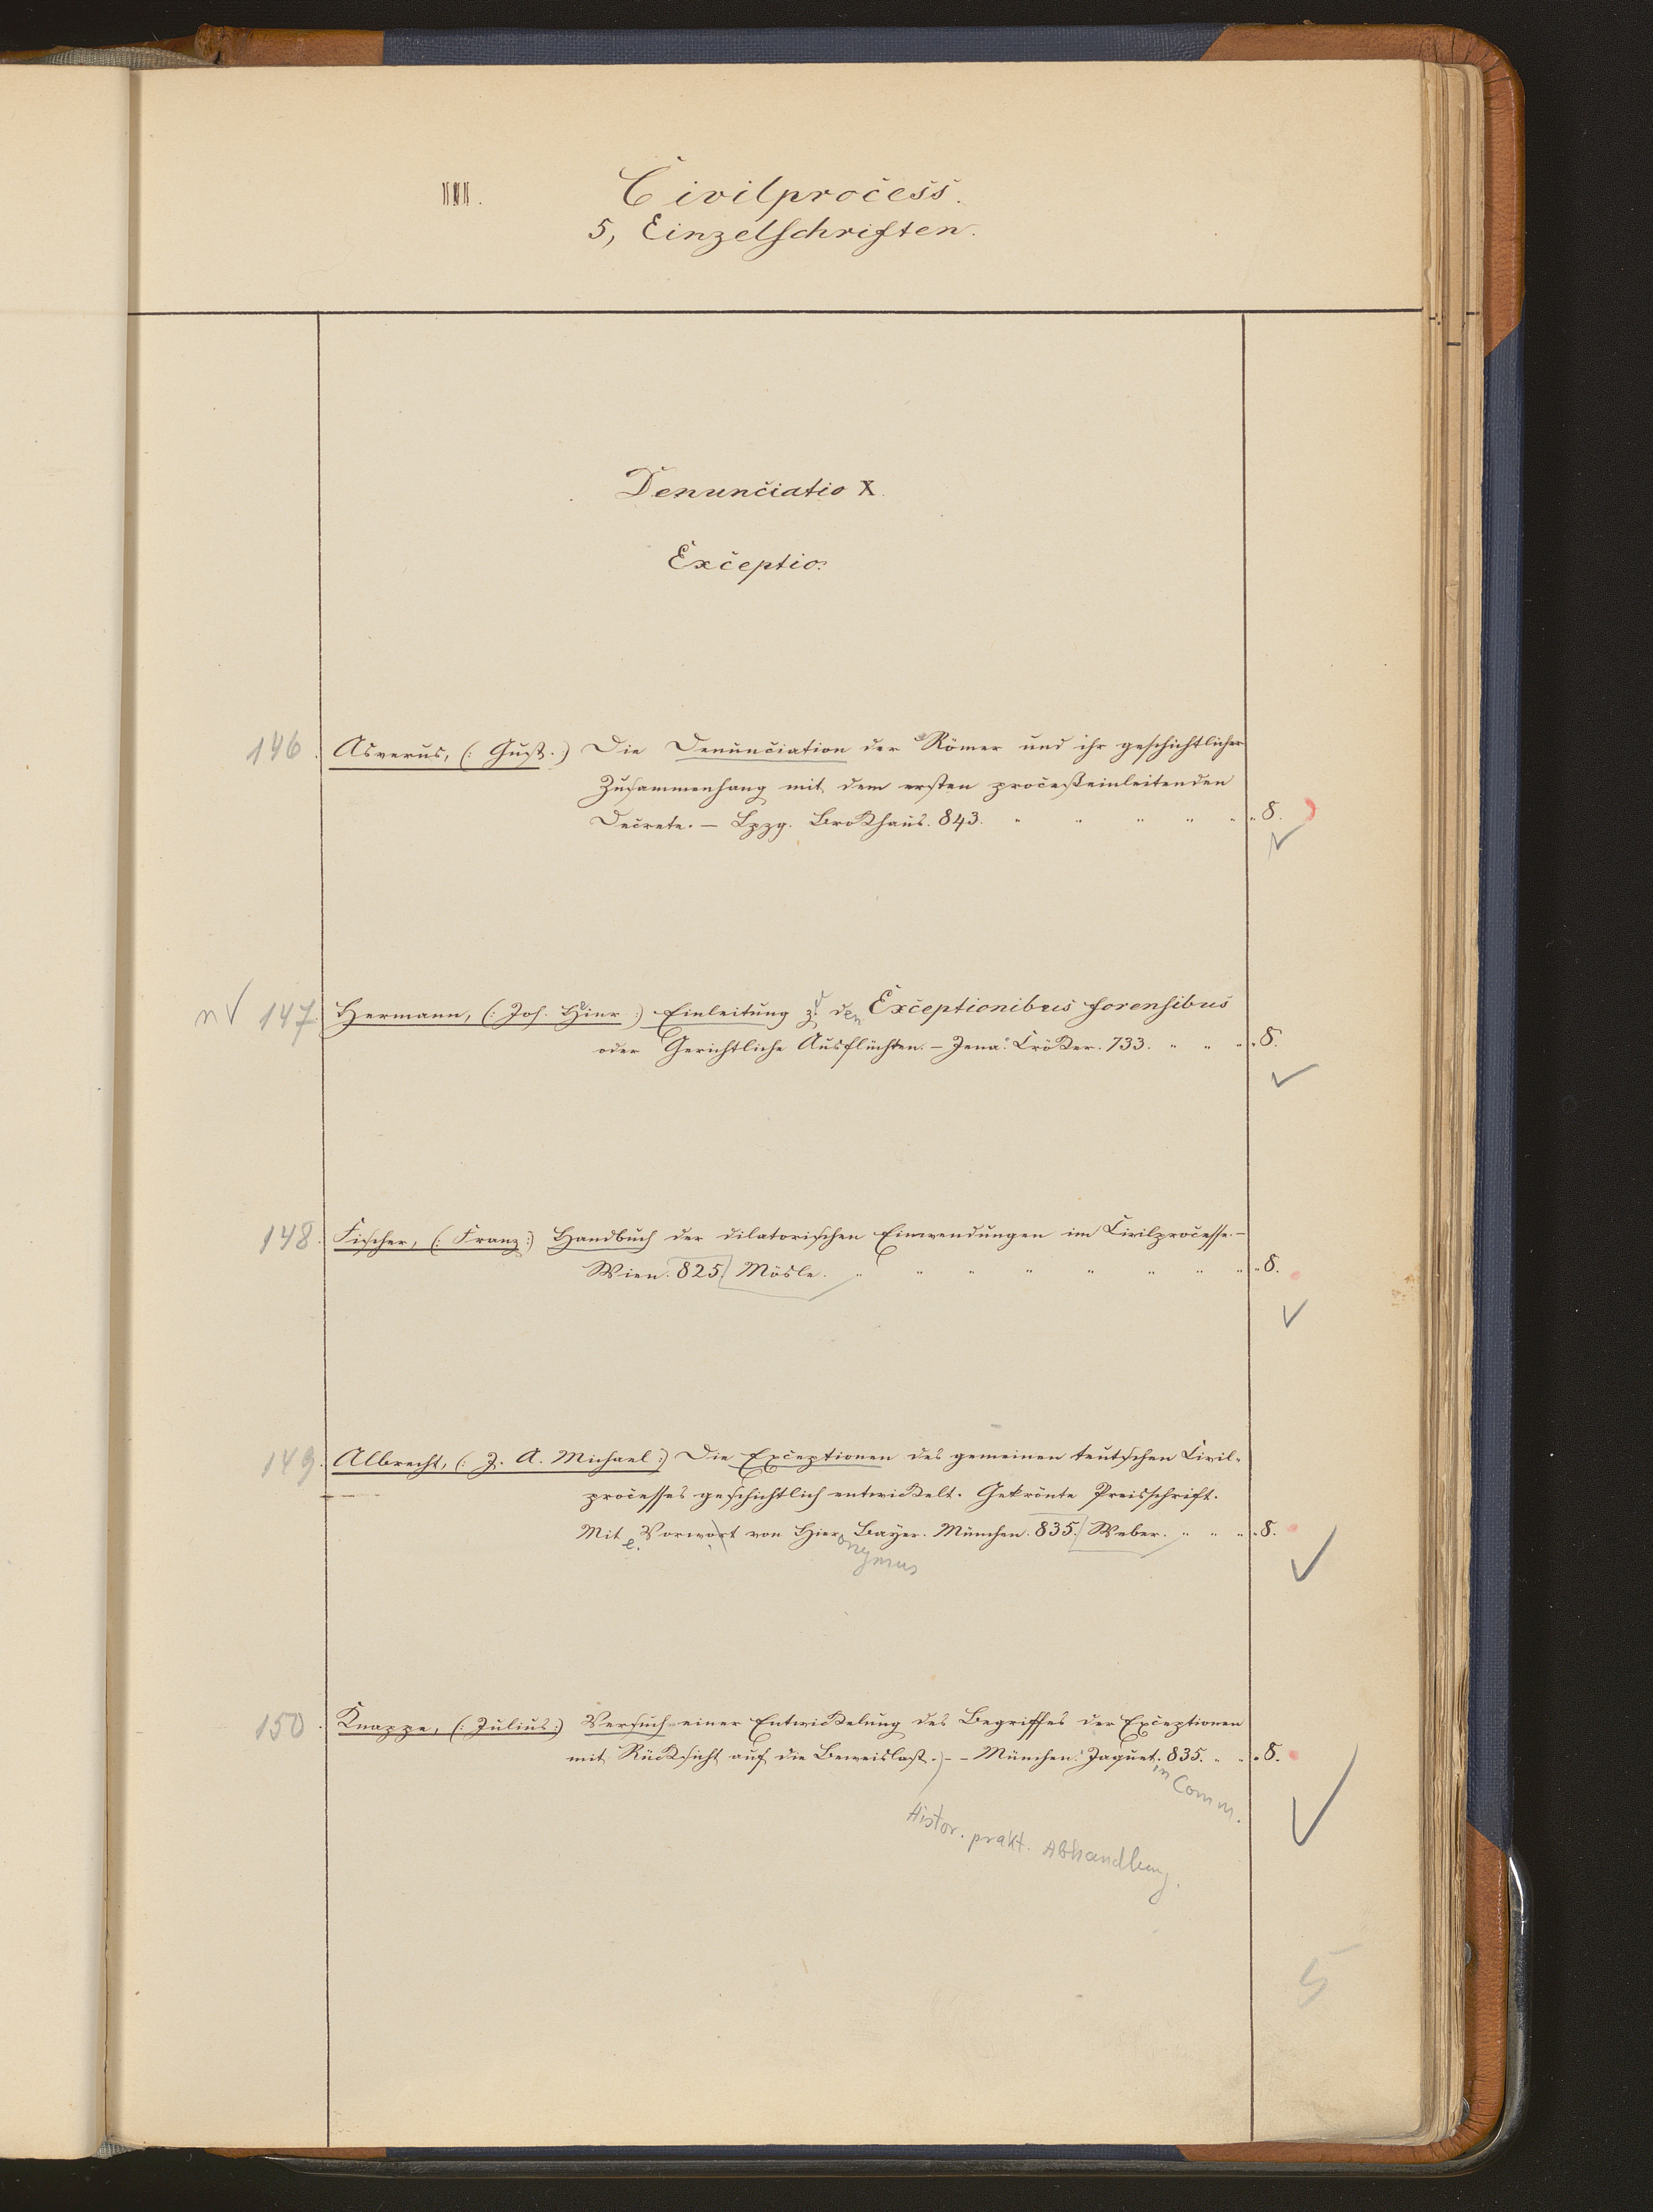 III. Civilprocess.
5, Einzelschriften.
Denunciatio X.
Exceptio.
146. Asverus, (: Gust. :) Die Denunciation der Römer und ihr geschichtlicher
Zusammenhang mit dem ersten proceßeinleitenden
Decrete. — Lpzg. Brockhaus. 843. " " " " " " 8.
n √ 147. Hermann, (: Joh. Hinr :) Einleitung z. den Exceptionibus forensibus
oder Gerichtliche Ausflüchten. — Jena. Cröker. 733. " " " " 8.
148. Fischer, (: Franz :) Handbuch der dilatorischen Einwendungen im Civilprocesse. —
Wien. 825. Mösle. " " " " " " " " " 8.
149. Albrecht, (: J. A. Michael :) Die Exceptionen des gemeinen teutschen Civil-
processes geschichtlich entwickelt. Gekrönte Preisschrift.
Mit e. Vorwort von Hieronymus Bayer. München. 835. Weber. " " " " 8.
150. Knappe, (: Julius :) Versuch einer Entwickelung des Begriffes der Exceptionen
mit Rücksicht auf die Beweislast. — — München. Jaquet. 835. " " " 8.
in Comm.
Histor. prakt. Abhandlung.
5